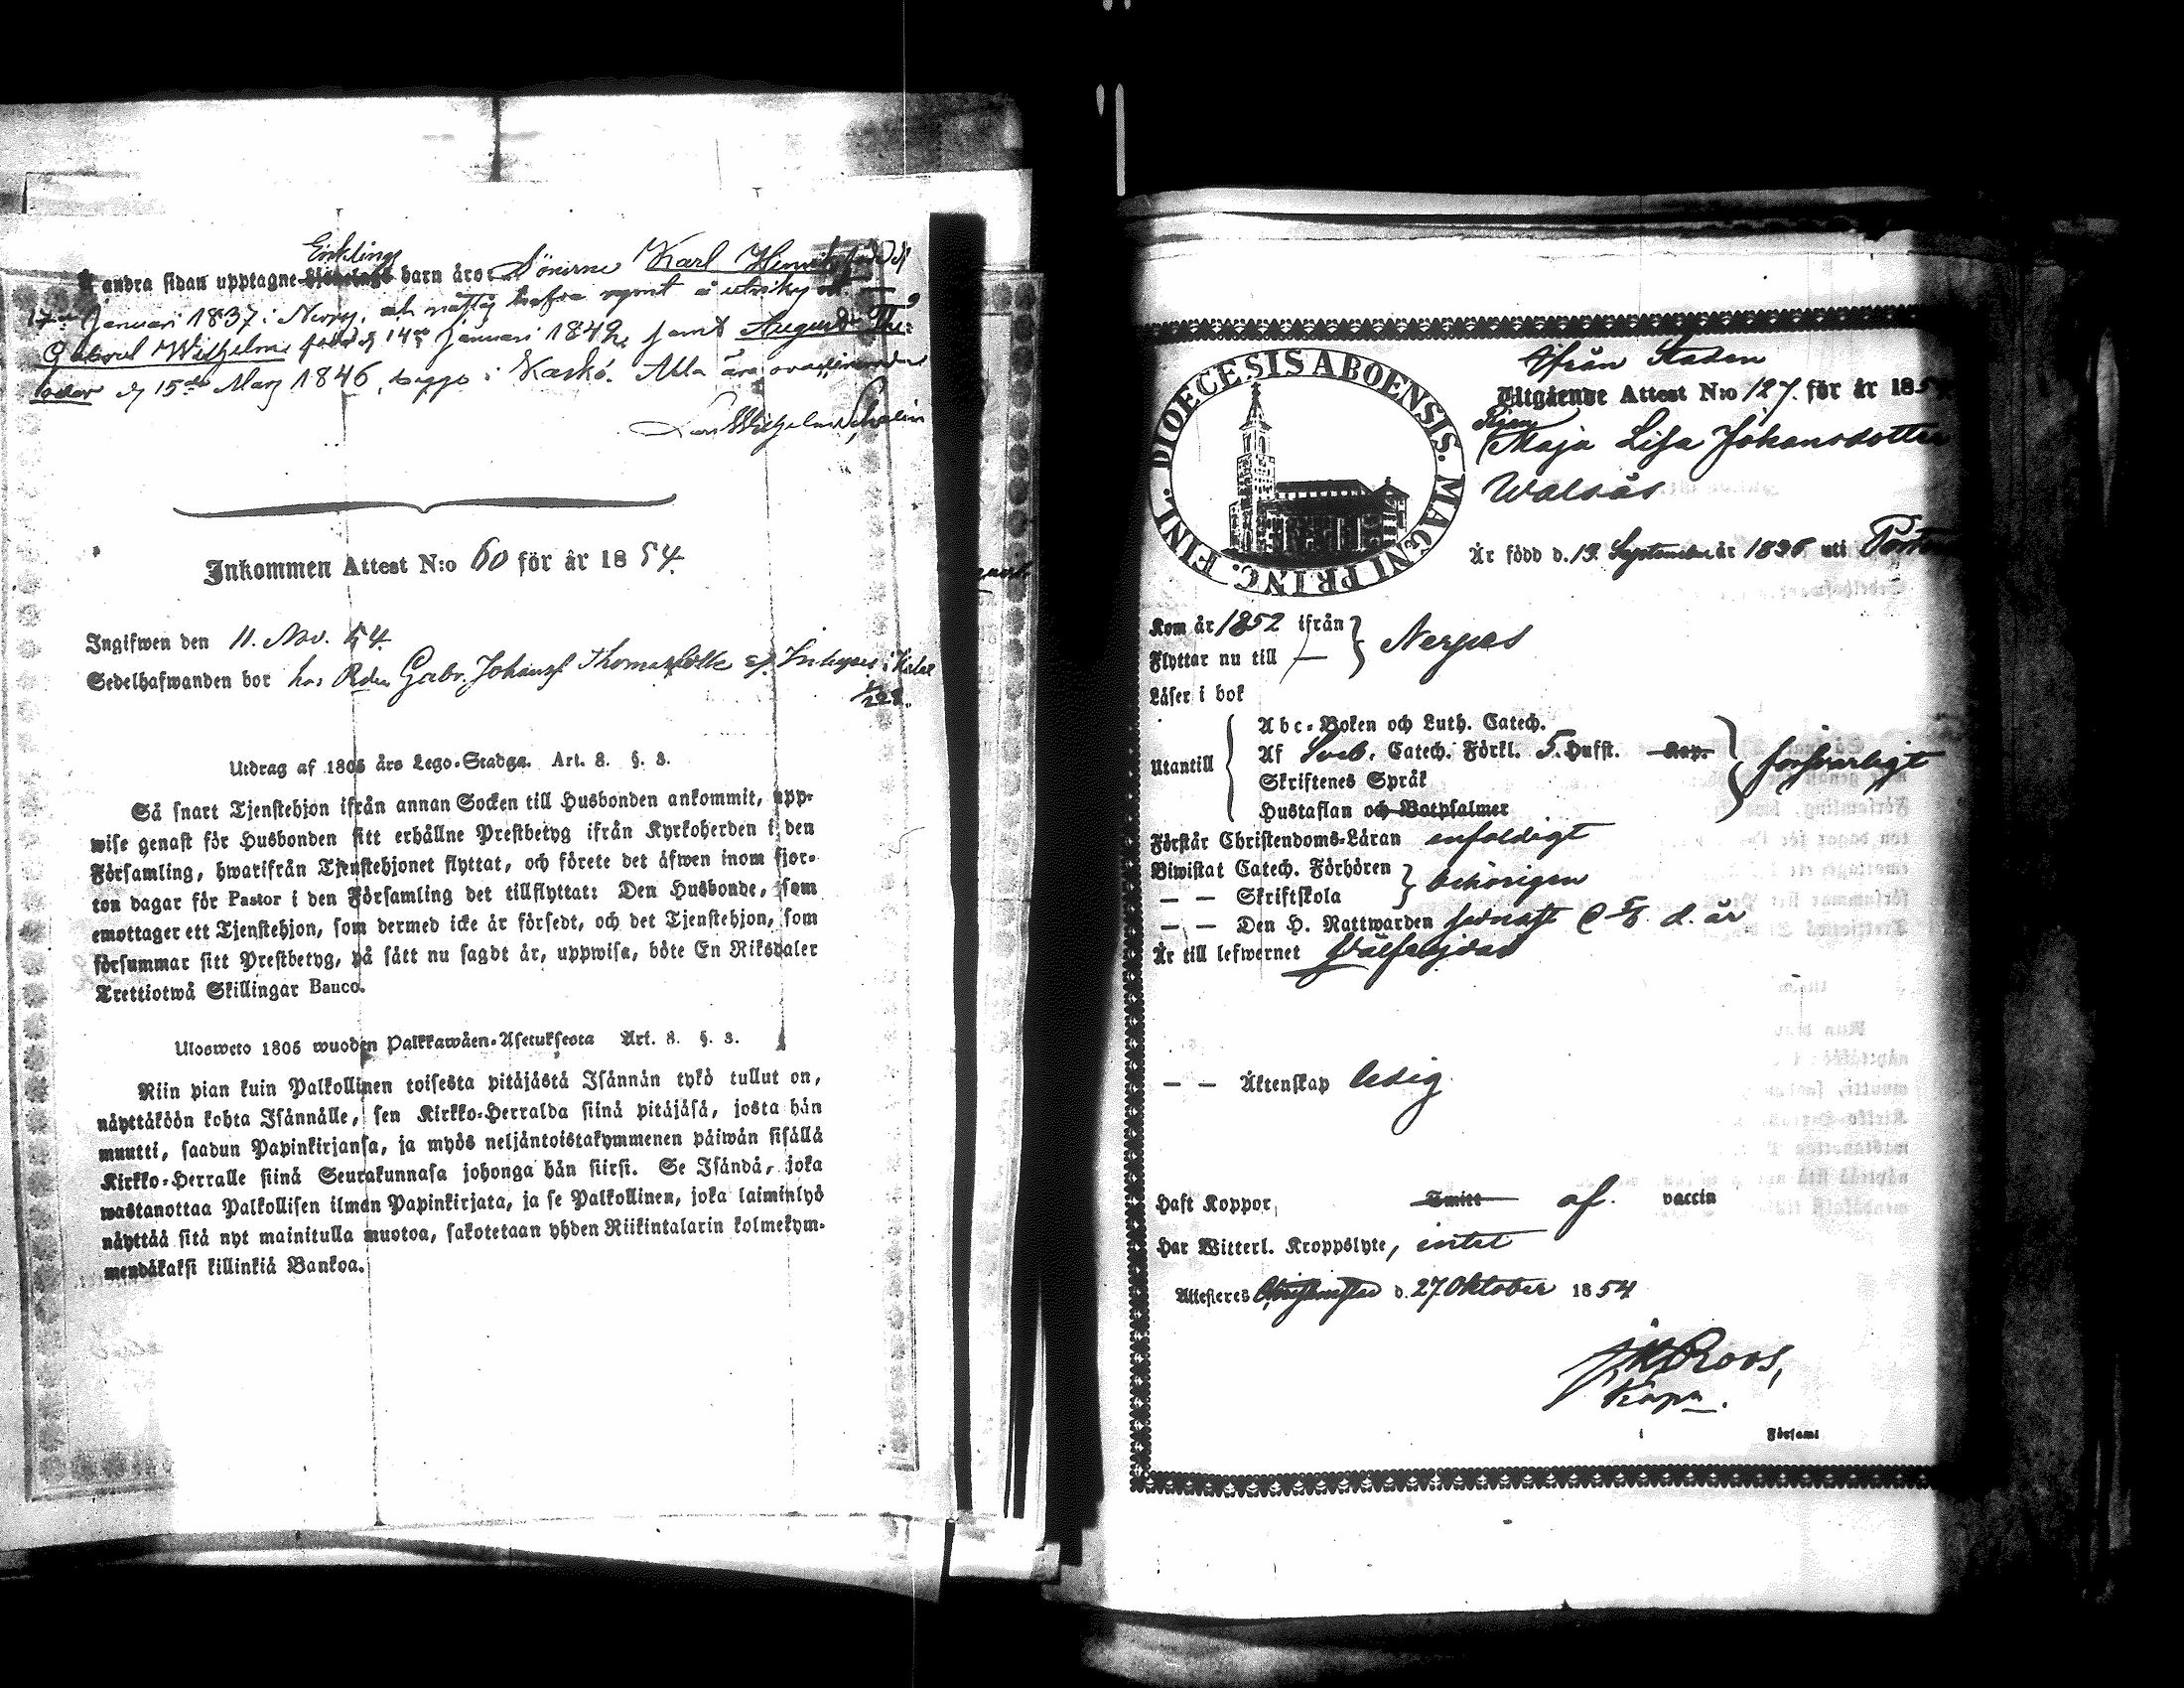 Enklings
Å andra sidan upptagne barn äro: Sönerne Karl
17 Januari 1837 i
Gabriel Wilhelm född d 14de Januari 1842, samt August
d 15de Mars 1846, begge i Kaskö. Alla äro
Wilhelm Schalin
Inkommen Attest N:o 60 för år 1854.
Ingifwen den 11. Nov. 54.
Sedelhafwanden bor hos Gabr. Johanss Thomasfolk
Utdrag af 1805 års Lego-Stadga. Art. 8. §. 3.
Så snart Tjenstehjon ifrån annan Socken till Husbonden ankommit, upp-
wise genast för Husbonden sitt erhållne Prestbetyg ifrån Kyrkoherden i den
Församling, hwarifrån Tjenstehjonet flyttat, och förete det äfwen inom fjor-
ton dagar för Pastor i den Församling det tillflyttat: Den Husbonde, som
emottager ett Tjenstehjon, som dermed icke är försedt, och det Tjenstehjon, som
försummar sitt Prestbetyg, på sätt nu sagdt är, uppwisa, böte En Riksdaler
Trettiotwå Skillingar Banco.
Ulosweto 1805 wuoden Palkkawäen-Asetuksesta Art. 8. §. 3.
Niin pian kuin Palkollinen toisesta pitäjästä Isännän tykö tullut on,
näyttäköön kohta Isännälle, sen Kirkko-Herralda siinä pitäjäsä, josta hän
muutti, saadun Papinkirjansa, ja myös neljäntoistakymmenen päiwän sisällä
Kirkko-Herralle siinä Seurakunnasa johonga hän siirsi. Se Isändä, joka
wastanottaa Palkollisen ilman Papinkirjata, ja se Palkollinen, joka laiminlyö
näyttää sitä nyt mainitulla muotoa, sakotetaan yhden Riikintalarin kolmekym-
mendäkaksi killinkiä Bankoa.
DIOECESIS ABOENSIS. MAGNI PRINC. FINL.
Ifrån Staden
Utgående Attest N:o 127. för år 185
Pigan
Maja Lisa Johansdotter
Walsås
Är född d. 19. September år 1836 uti
Kom år 1852 ifrån } Nerpes
Flyttar nu till —
Läser i bok
Utantill
Abc-Boken och Luth. Catech.
Af Sveb. Catech. Förkl. 5. Hufst. Kap.
Skriftenes Språk
Hustaflan och Botpsalmer
försvarligt
Förstår Christendoms-Läran enfaldigt
Biwistat Catech. Förhören } behörigen
— — Skriftskola
— — Den H. Nattwarden sednast d. år
Är till lefwernet Välfrejdad
— — Äktenskap ledig
Haft Koppor, Smitt af. vaccin
Har Witterl. Kroppslyte, intet
Attesteres Christinestad d. 27 Oktober 1854
Roos,
Kapn.
i Församl